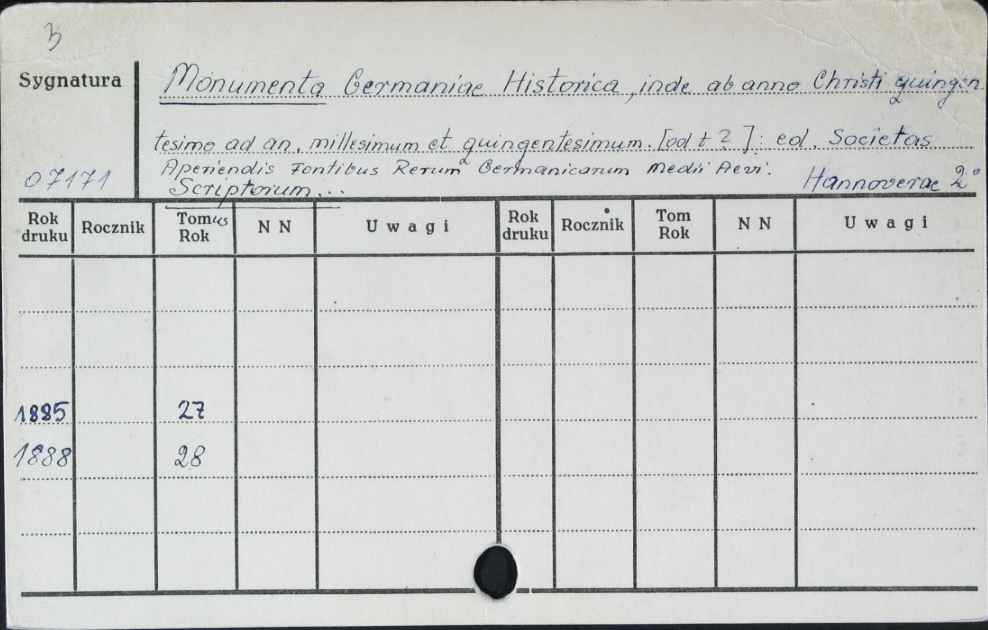 3
Sygnatura
Monumenta Germaniae Historica, inde ab anno Christi quingen
tesimo ad an. millesimum et quingentesimum. [od t. 2]: ed. Societas
Aperiendis Fontibus Rerum Germanicarum Medii Aevi.
07171
Scriptorum...
Hannoverae 2°
Rok druku Rocznik Tomus Rok N N Uwagi Rok druku Rocznik Tom Rok N N Uwagi
1885 27
1888 28